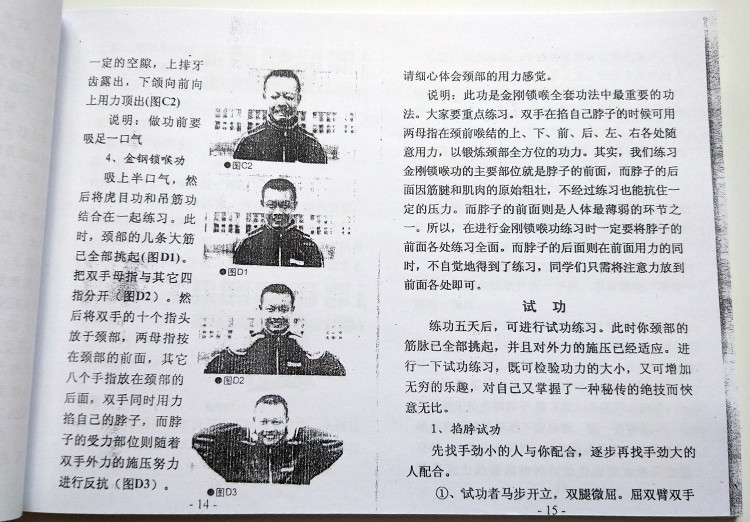 一定的空隙，上排牙
齿露出，下颌向前向
上用力顶出(图C2)
说明：做功前要
吸足一口气
4、金钢锁喉功
吸上半口气，然
后将虎目功和吊筋功
结合在一起练习。此
时，颈部的几条大筋
已全部挑起(图D1)。
把双手母指与其它四
指分开（图D2）。然
后将双手的十个指头
放于颈部，两母指按
在颈部的前面，其它
八个手指放在颈部的
后面，双手同时用力
掐自己的脖子，而脖
子的受力部位则随着
双手外力的施压努力
进行反抗（图D3）。
●图C2
●图D1
●图D2
●图D3
- 14 -
请细心体会颈部的用力感觉。
说明：此功是金刚锁喉全套功法中最重要的功
法。大家要重点练习。双手在掐自己脖子的时候可用
两母指在颈前喉结的上、下、前、后、左、右各处随
意用力，以锻炼颈部全方位的功力。其实，我们练习
金刚锁喉功的主要部位就是脖子的前面，而脖子的后
面因筋腱和肌肉的原始粗壮，不经过练习也能抗住一
定的压力。而脖子的前面则是人体最薄弱的环节之
一。所以，在进行金刚锁喉功练习时一定要将脖子的
前面各处练习全面。而脖子的后面则在前面用力的同
时，不自觉地得到了练习，同学们只需将注意力放到
前面各处即可。
试 功
练功五天后，可进行试功练习。此时你颈部的
筋脉已全部挑起，并且对外力的施压已经适应。进
行一下试功练习，既可检验功力的大小，又可增加
无穷的乐趣，对自己又掌握了一种秘传的绝技而快
意无比。
1、掐脖试功
先找手劲小的人与你配合，逐步再找手劲大的
人配合。
①、试功者马步开立，双腿微屈。屈双臂双手
- 15 -